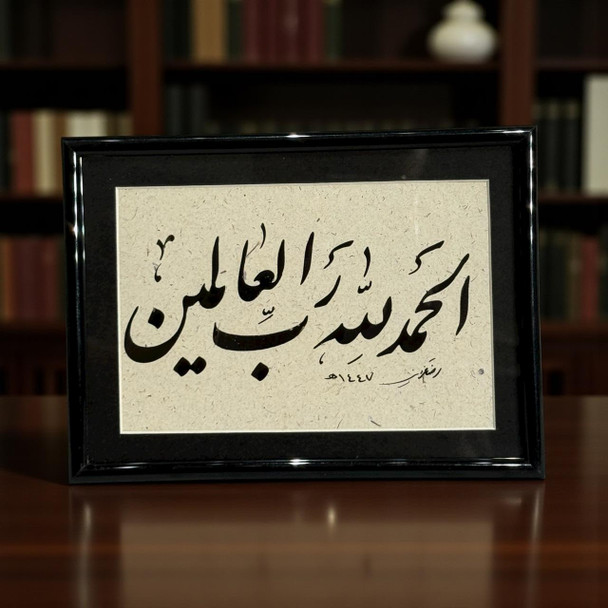 الحمد لله رب العالمين
١٤٤٧هـ